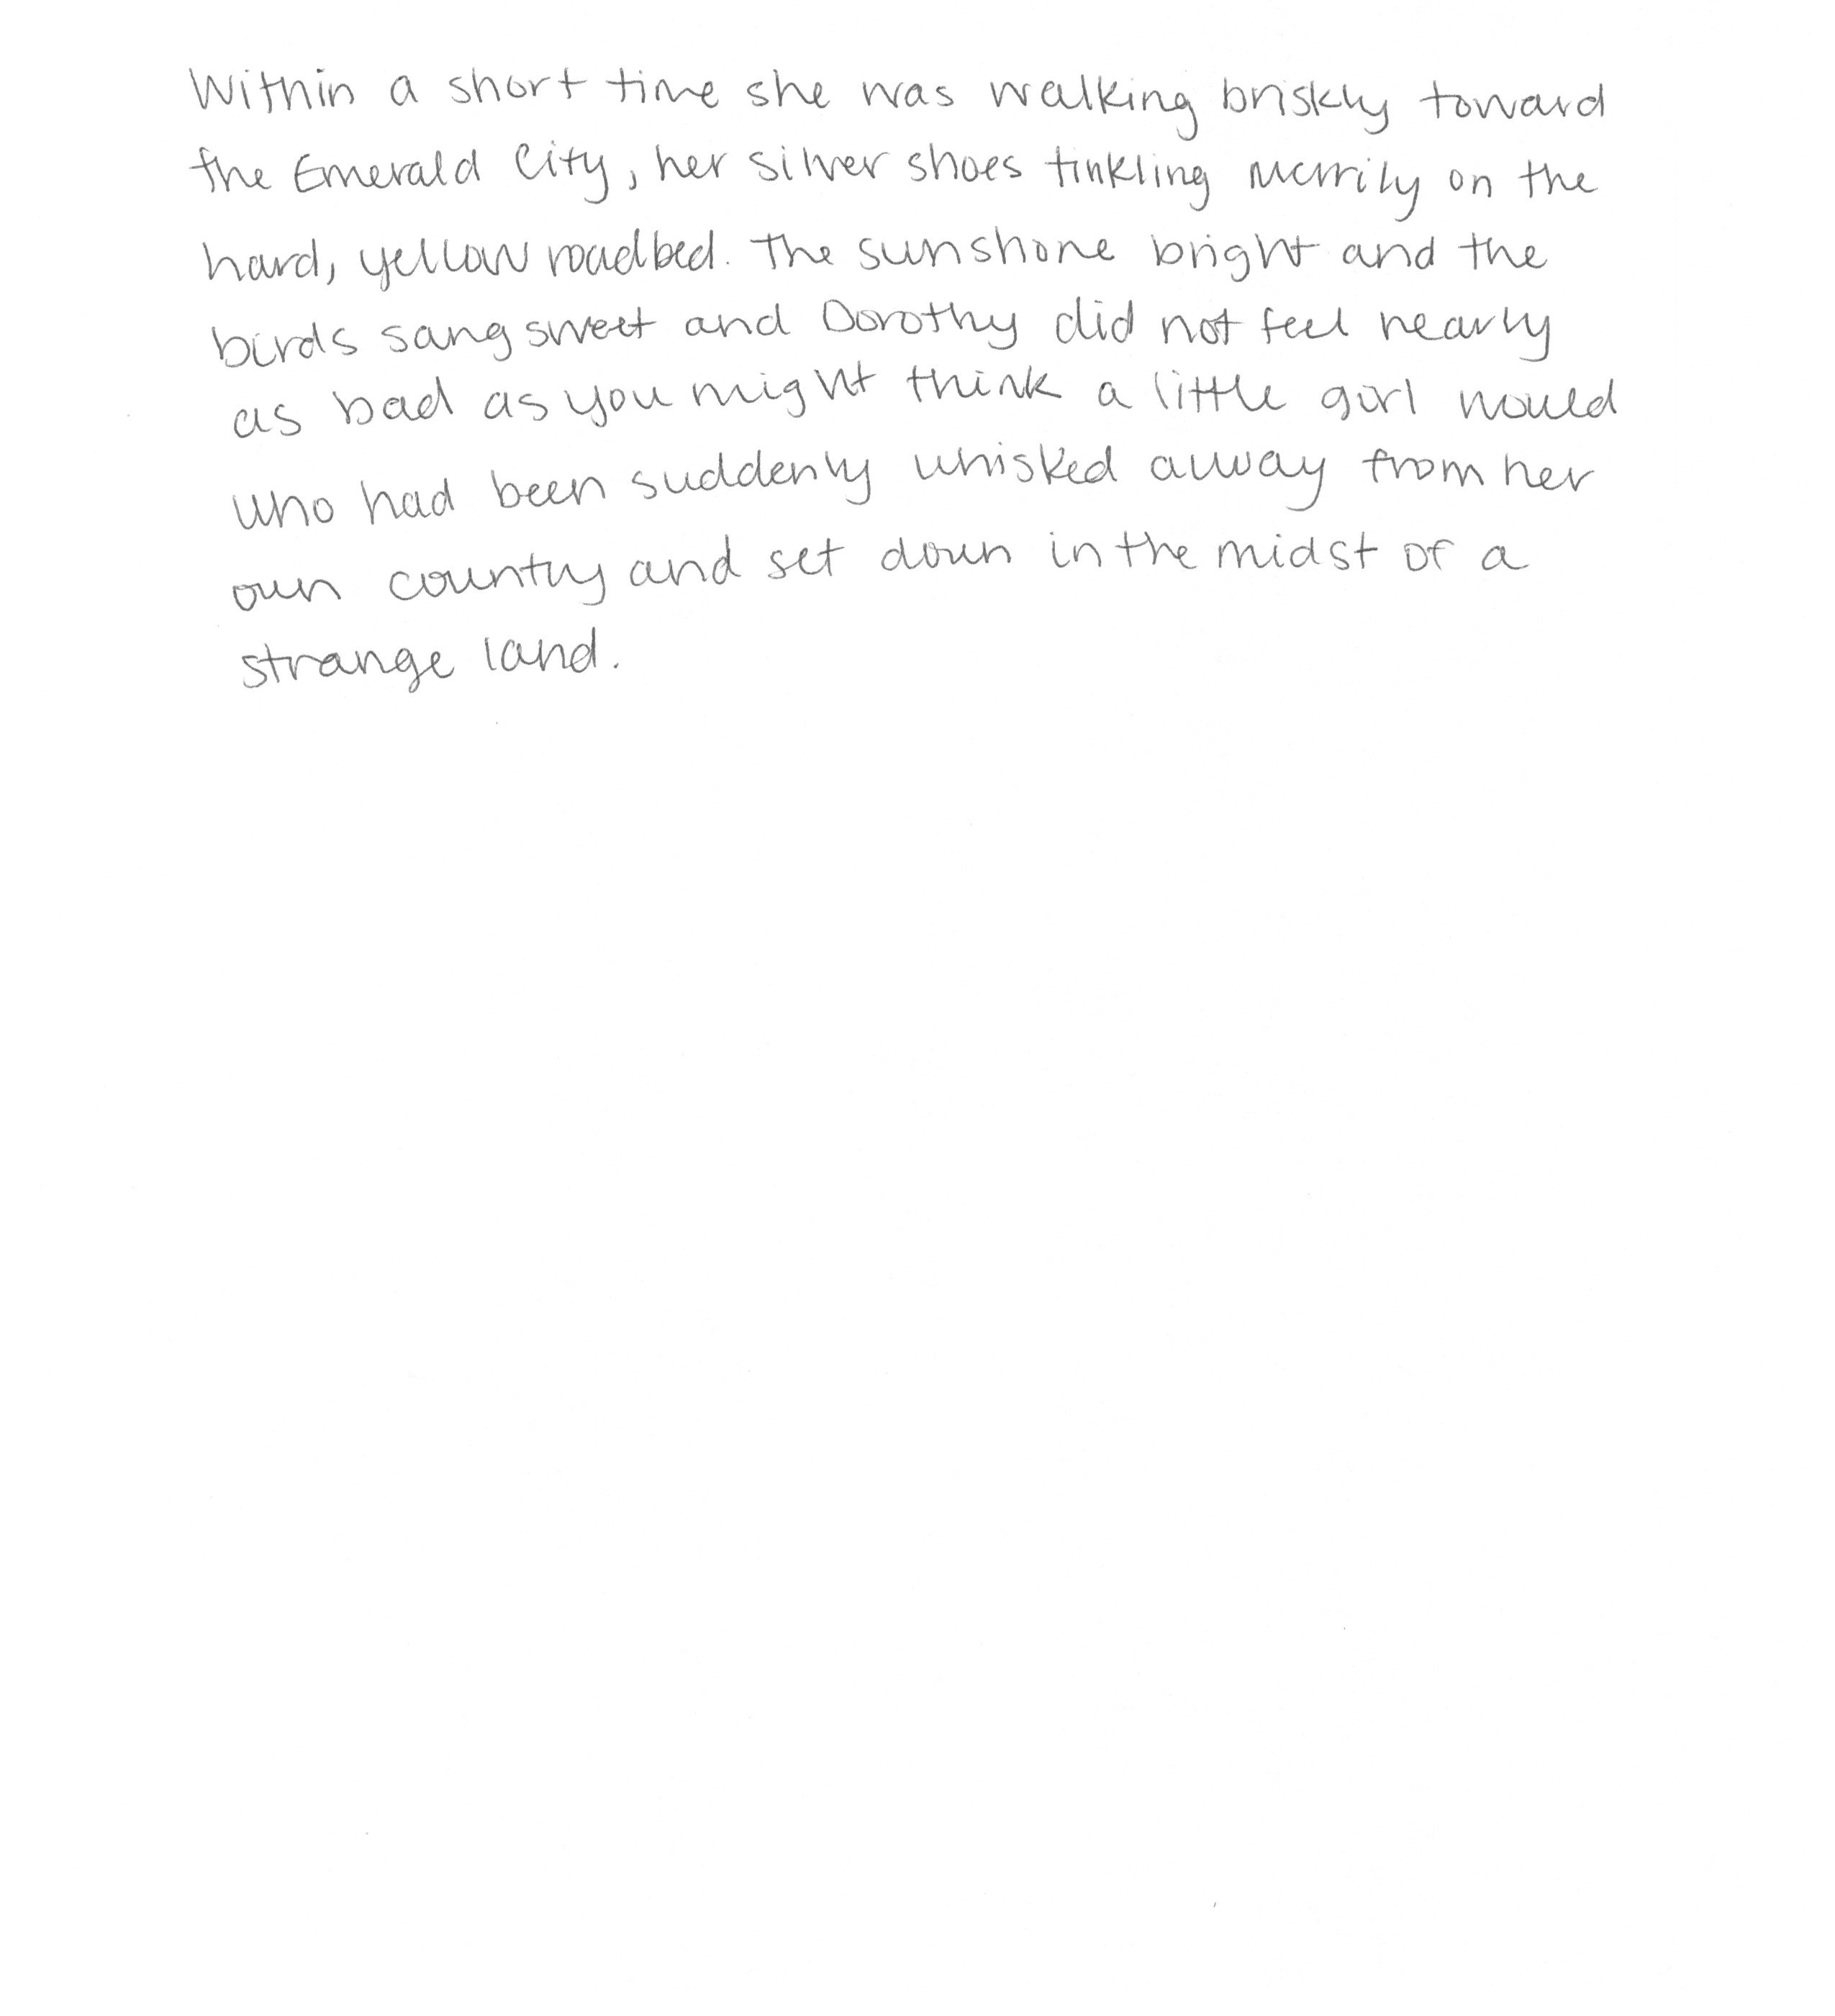 Within a short time she was walking briskly toward
the Emerald City, her silver shoes tinkling merrily on the
hard, yellow roadbed. The sun shone bright and the
birds sang sweet and Dorothy did not feel nearly
as bad as you might think a little girl would
who had been suddenly whisked away from her
own country and set down in the midst of a
strange land.